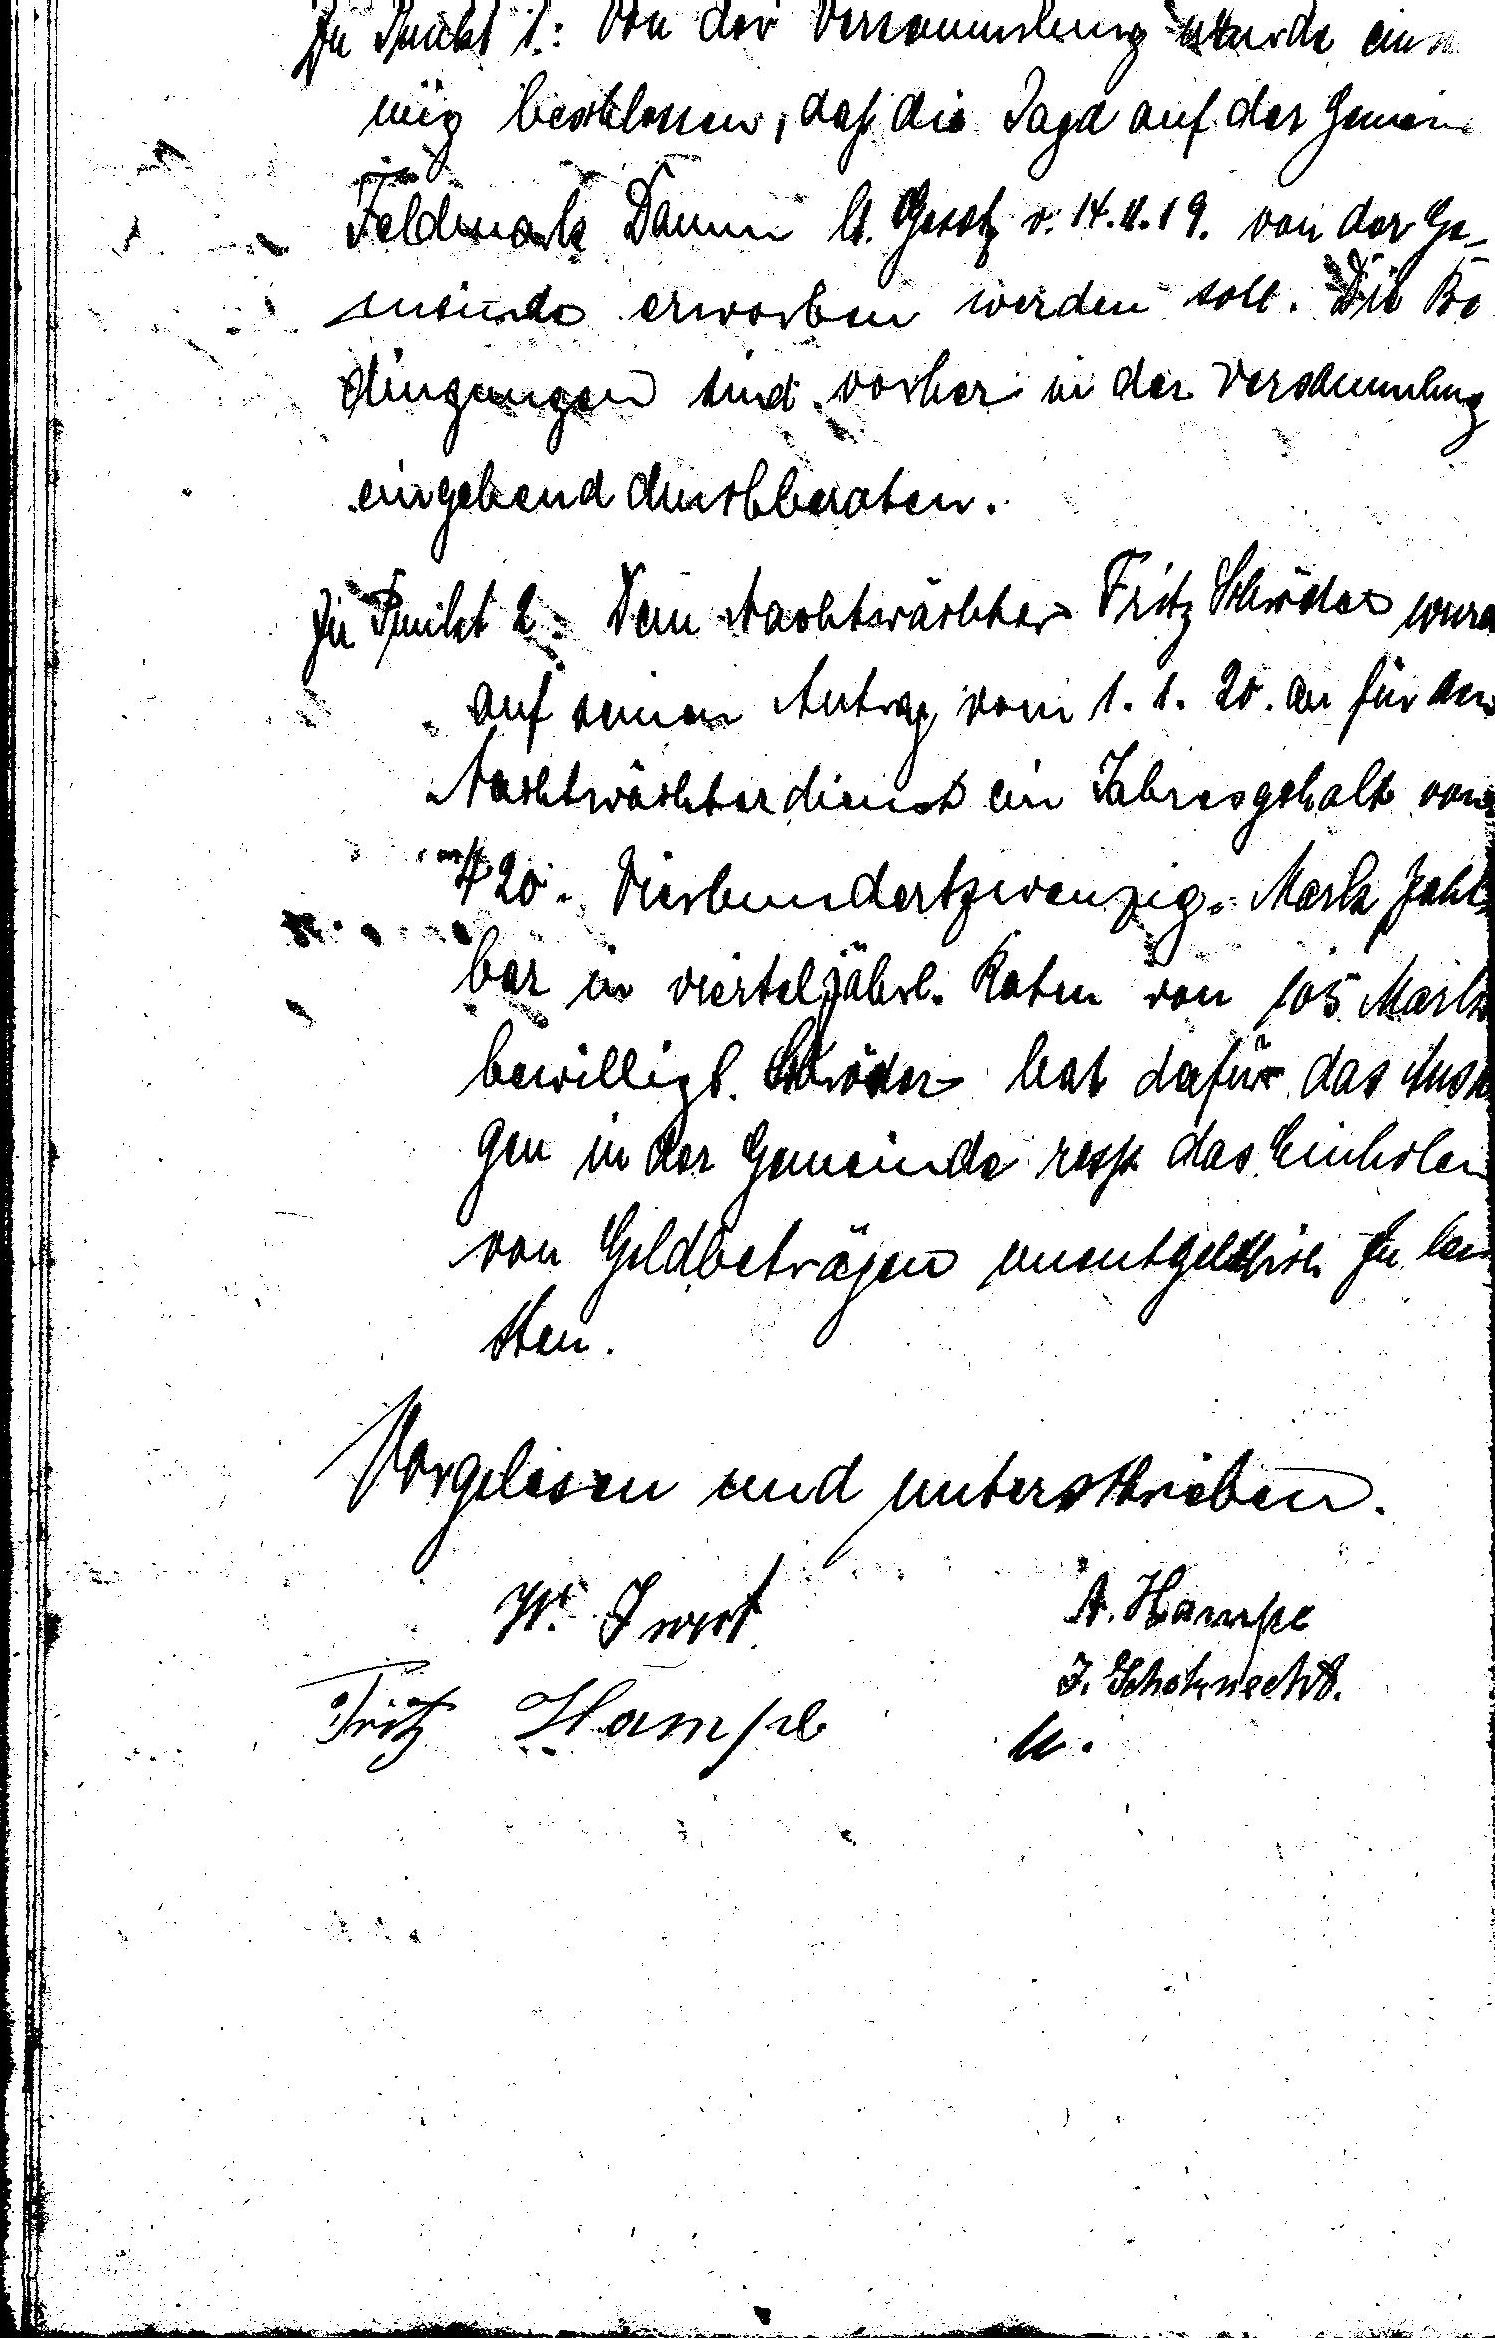 Zu Punkt 1.: Von der Versammlung wurde einm
mig beschlossen, daß die Jagd auf der Gemein
Feldmark Damm lt. Gesetz v. 14.11.19. von der Ge-
meinde erworben werden soll. Die Be
dingungen sind vorher in der Versammlung
eingehend durchberaten.
Zu Punkt 2. Dem Nachtwächter Fritz Schröder wurd
auf seinen Antrag vom 1. 1. 20. an für den
Nachtwächterdienst ein Jahresgehalt von
420. Vierhundertzwanzig. Mark zahl-
bar in vierteljährl. Raten von 105 Mark
bewilligt. Schröder hat dafür das Ansa
gen in der Gemeinde resp das Einholen
von Geldbeträgen unentgeldlich zu lei
sten.
Vorgelesen und unterschrieben.
W. A. Hampe
Fritz Hampe J. Schoknecht.